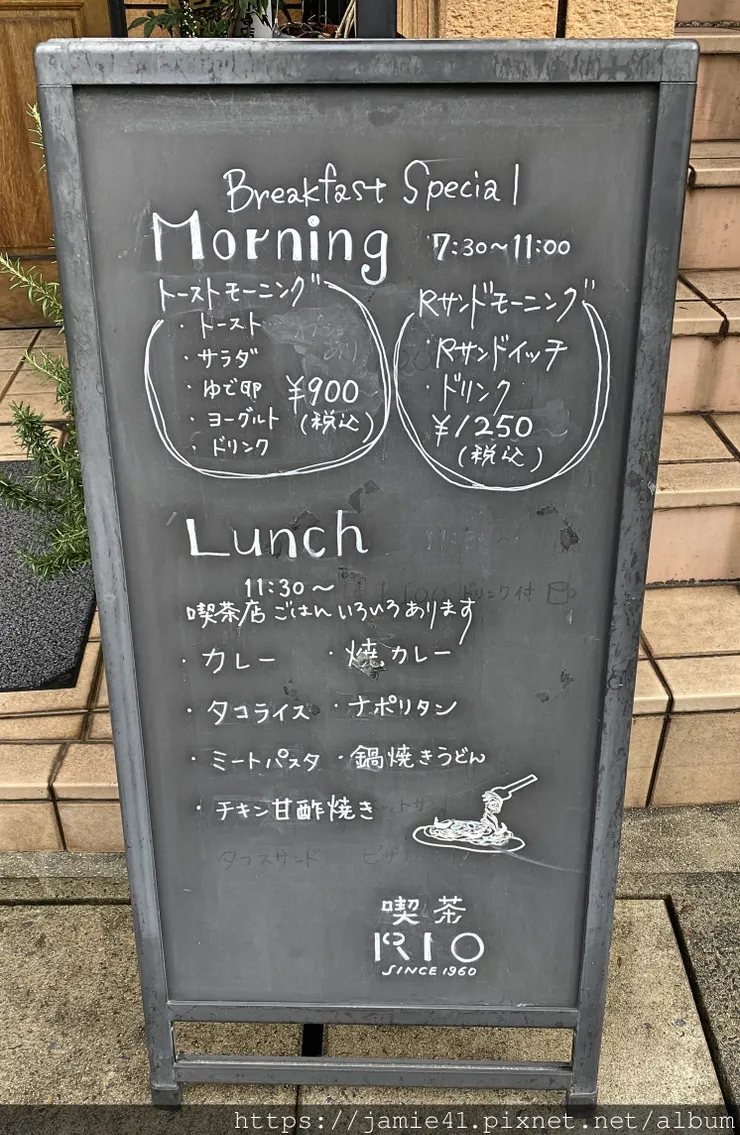 Breakfast Special
Morning 7:30～11:00
トーストモーニング
・トースト
・サラダ
・ゆで卵
・ヨーグルト
・ドリンク
¥900
(税込)
Rサンドモーニング
・Rサンドイッチ
・ドリンク
¥1250
(税込)
Lunch
11:30～
喫茶店ごはんいろいろあります
・カレー ・焼カレー
・タコライス ・ナポリタン
・ミートパスタ ・鍋焼きうどん
・チキン甘酢焼き
ドリンク付
タコスサンド
喫茶
RIO
SINCE 1960
https://jamie41.pixnet.net/album